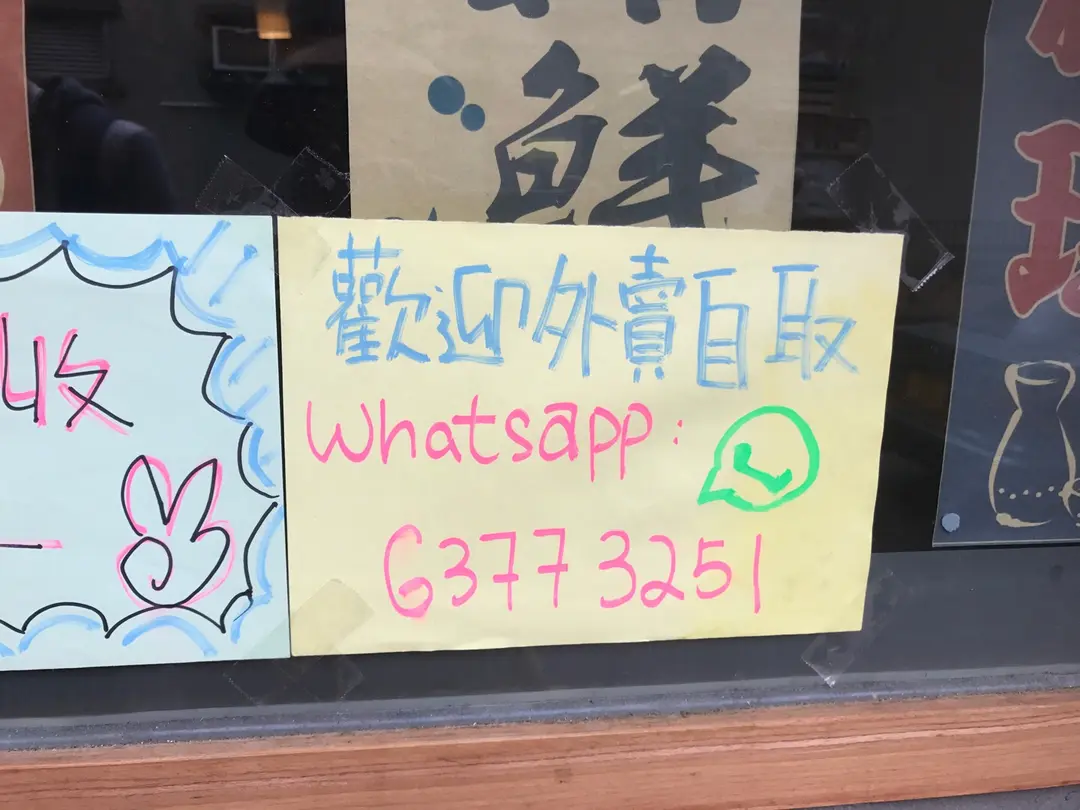 鮮
歡迎外賣自取
Whatsapp:
6377 3251
收